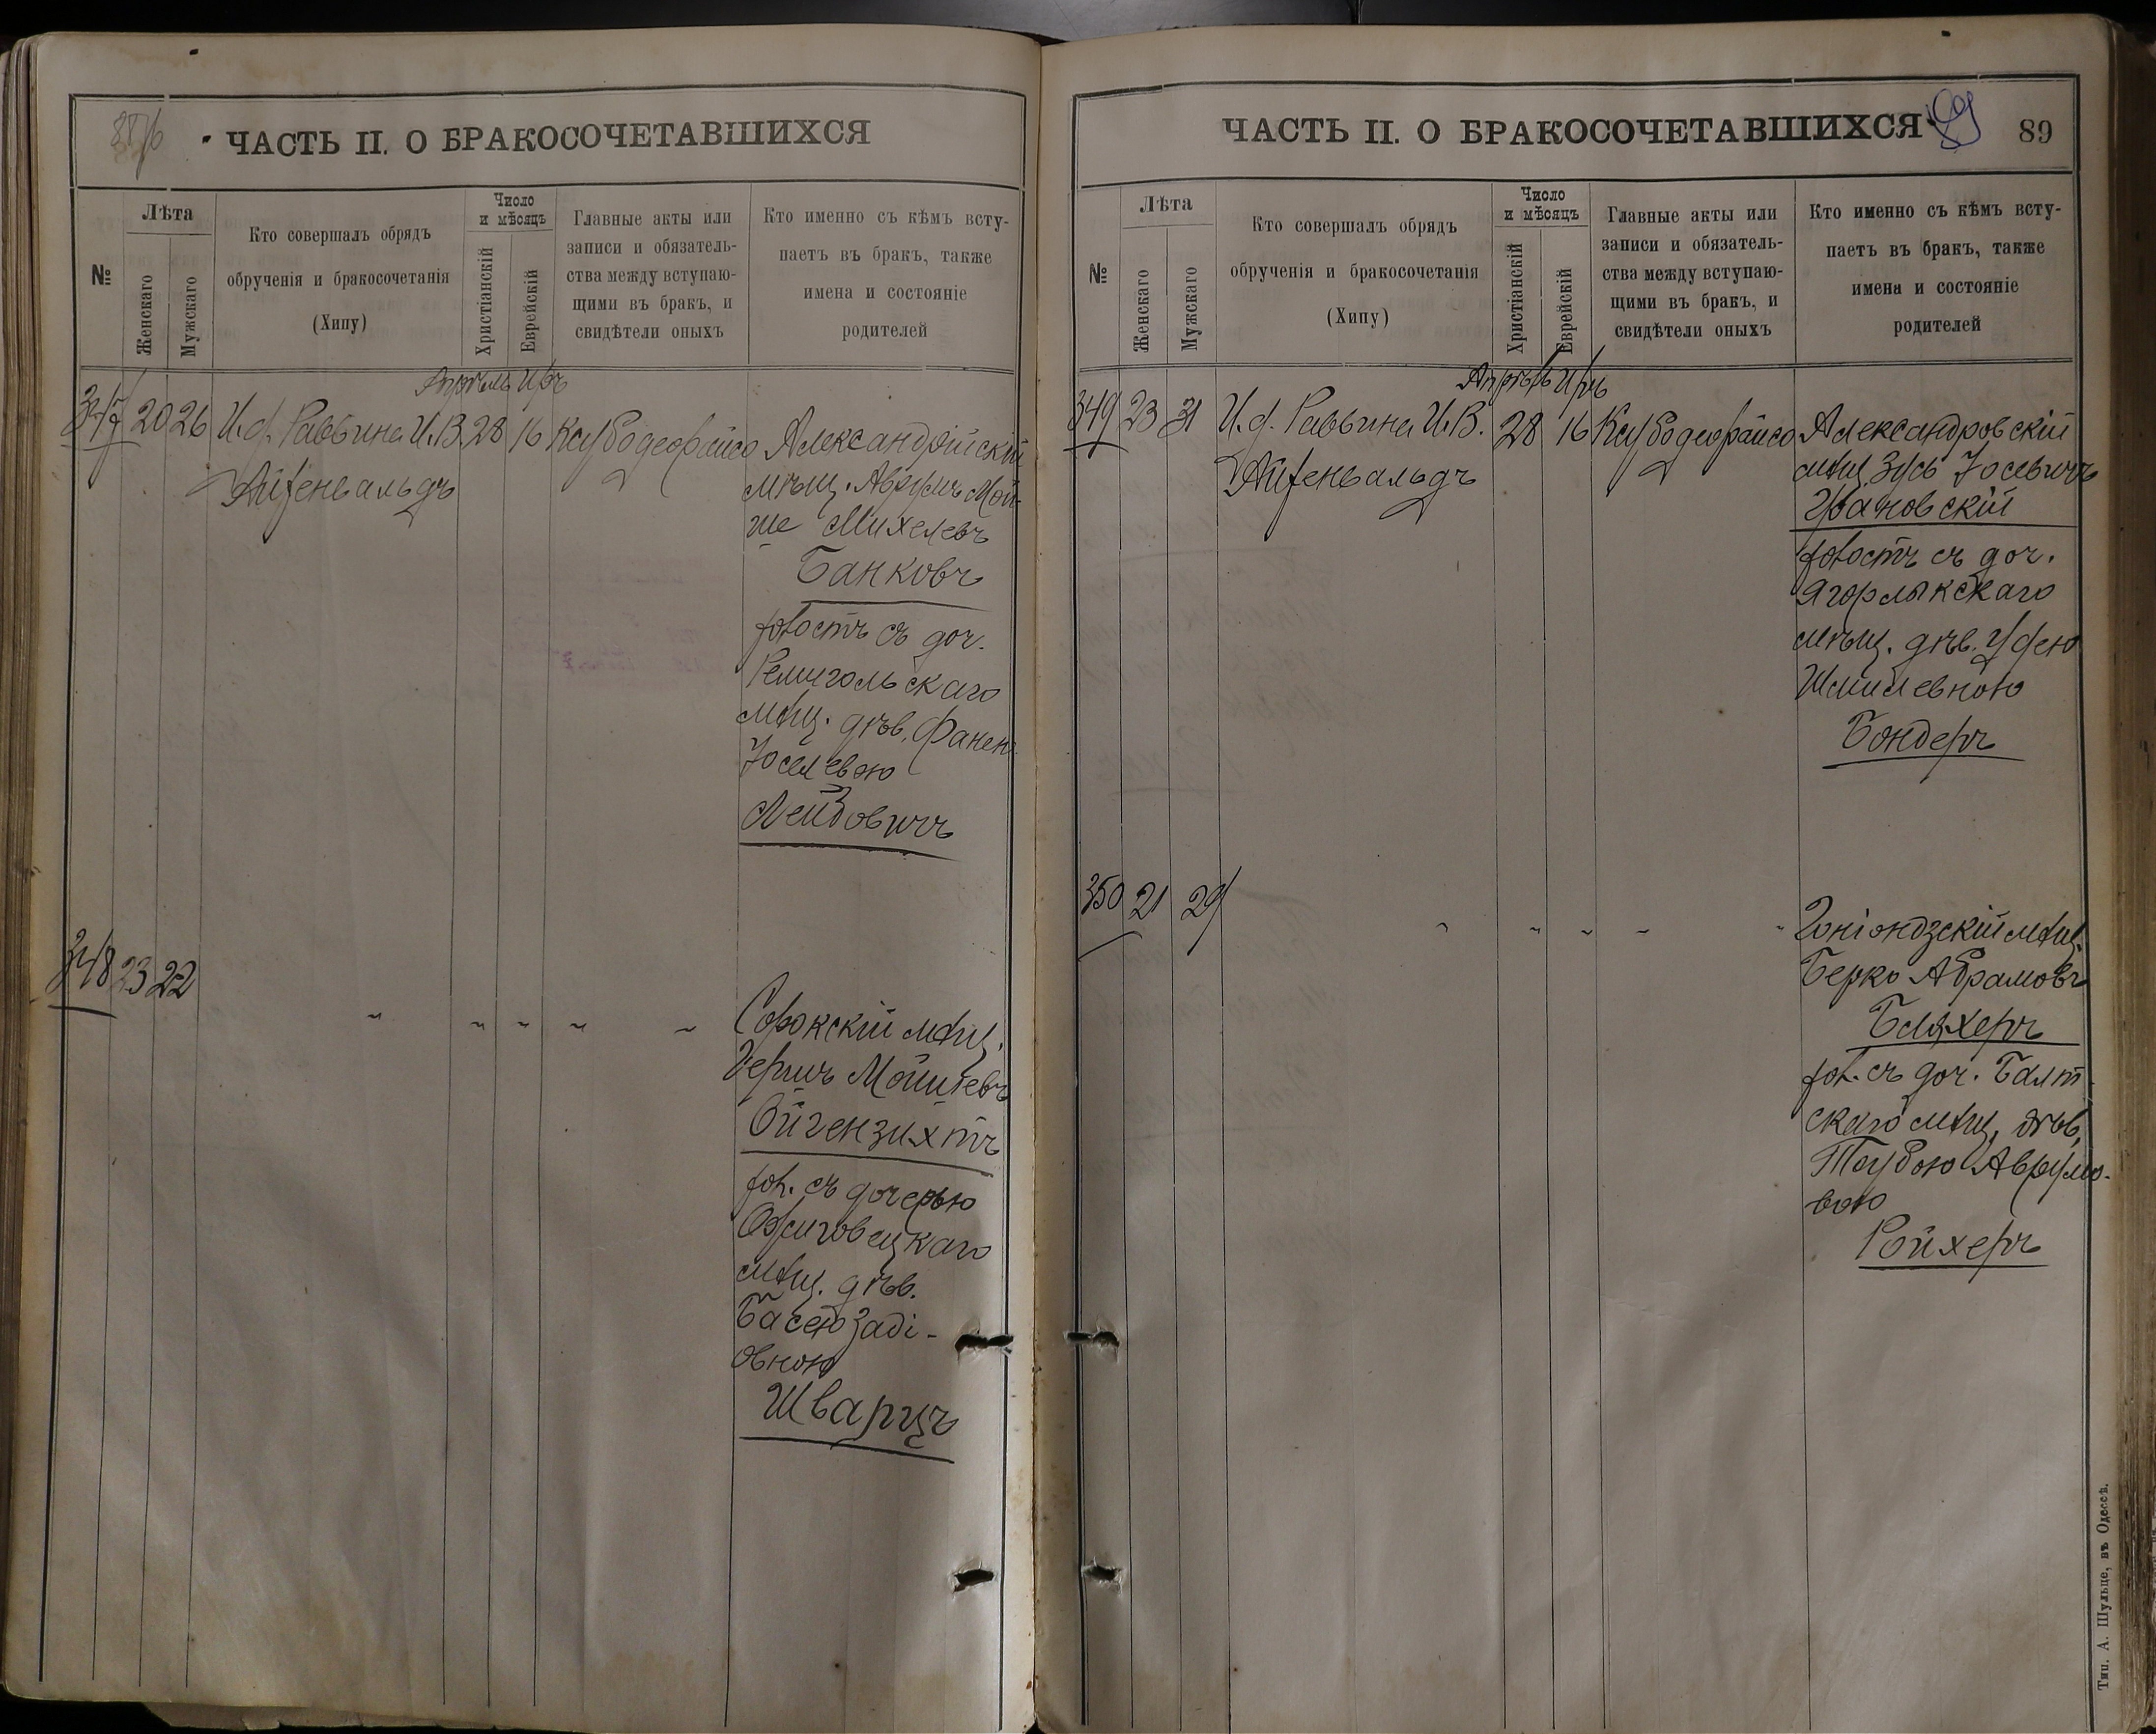 ЧАСТЬ II. О БРАКОСОЧЕТАВШИХСЯ
№
Лѣта
Женскаго
Мужскаго
Кто совершалъ обрядъ
обрученія и бракосочетанія
(Хипу)
Число
и мѣсяцъ
Христіанскій
Еврейскій
Главные акты или
записи и обязатель-
ства между вступаю-
щими въ бракъ, и
свидѣтели оныхъ
Кто именно съ кѣмъ всту-
паетъ въ бракъ, также
имена и состояніе
родителей
Апрѣль Иръ
347 20 26 И. д. Раввина И. В. 28 16 Каубодеорайсо
Айзенвальдъ
Александрійскій
мѣщ. Аврумъ Мой-
ше Михелевъ
Банковъ
холостъ съ доч.
Ремигольскаго
мѣщ. дѣв. Фанею
Іоселевою
Лейбовичъ
348 23 22
Сорокскій мѣщ.
Гершъ Мошкевъ
Ойгензихтъ
хол. съ дочерью
мѣщ. дѣв.
Басею Заді-
овною
Шварцъ
ЧАСТЬ II. О БРАКОСОЧЕТАВШИХСЯ
89
89
№
Лѣта
Женскаго
Мужскаго
Кто совершалъ обрядъ
обрученія и бракосочетанія
(Хипу)
Число
и мѣсяцъ
Христіанскій
Еврейскій
Главные акты или
записи и обязатель-
ства между вступаю-
щими въ бракъ, и
свидѣтели оныхъ
Кто именно съ кѣмъ всту-
паетъ въ бракъ, также
имена и состояніе
родителей
Апрѣль Иръ
349 23 31 И. д. Раввина И. В. 28 16 Каубодеорайсо
Айзенвальдъ
Александровскій
мѣщ. Зусь Іосевичъ
Грановскій
холостъ съ доч.
Ягорлыкскаго
мѣщ. дѣв. Удею
Шмилевною
Бондеръ
350 21 29
Гоніондзскій мѣщ.
Берко Абрамовъ
Бляхеръ
хол. съ доч. Балт-
скаго мѣщ. дѣв.
Таубою Аврумо-
вою
Ройхеръ
Тип. А. Шульце, въ Одессѣ.